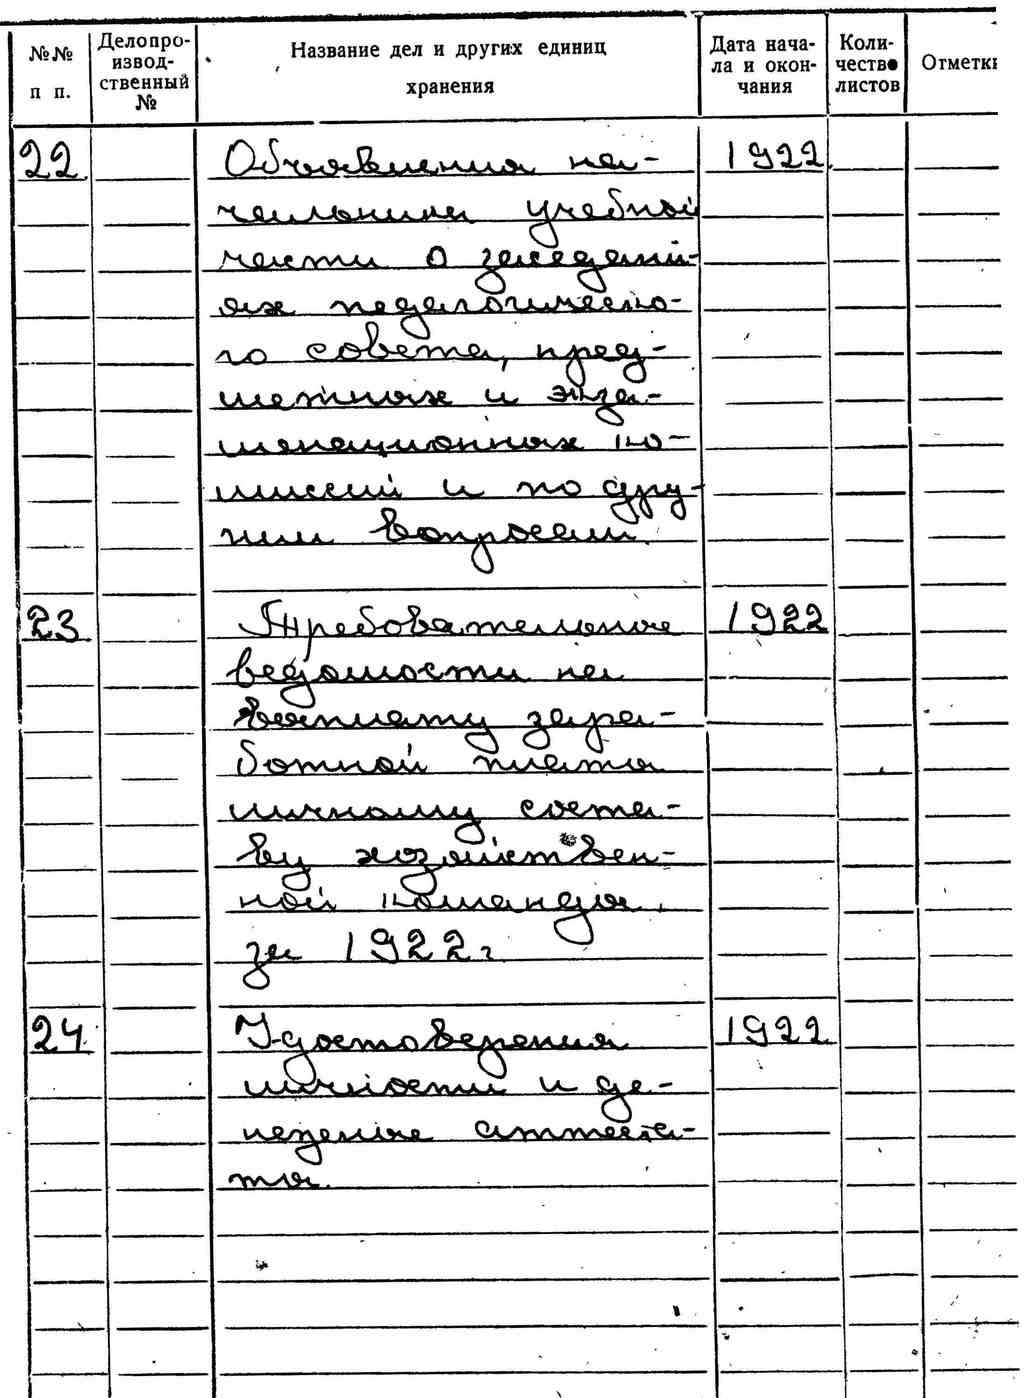 №№ п п.
Делопро-
извод-
ственный
№
Название дел и других единиц
хранения
Дата нача-
ла и окон-
чания
Коли-
чество
листов
Отметки
22 Объявления на- 1922
чальника учебной
части о заседани-
ях педагогическо-
го совета, пред-
метных и экза-
менационных ко-
миссий и по дру-
гим вопросам.
23 Требовательные 1922
ведомости на
выплату зара-
ботной платы
личному соста-
ву хозяйствен-
ной команды
за 1922 г
24 Удостоверения 1922
личности и де-
нежные аттеста-
ты.